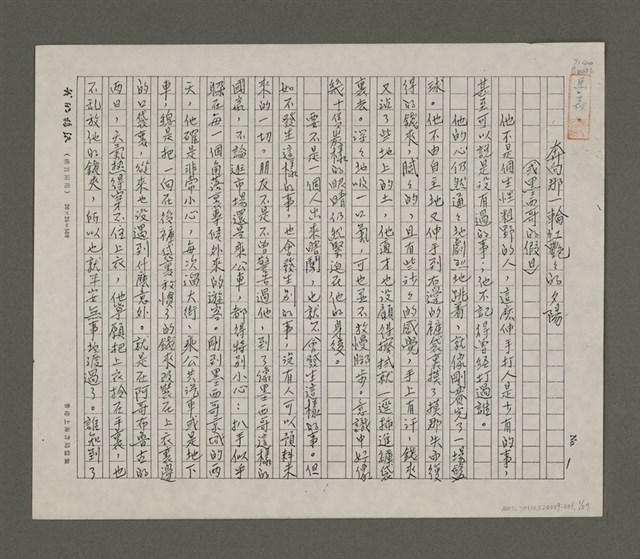 奔向那一輪紅艷々的夕陽
(或墨西哥的假日)
他不是個生性粗野的人，這麼伸手打人是少有的事，
甚至可以說是沒有過的事；他不記得曾經打過誰。
他的心仍然通々地劇烈地跳着，就像剛賽完了一場籃
球。他不由自主地又伸手到右邊的褲袋裏摸了摸那失而復
得的錢夾，膩々的，且有些沙々的感覺，手上有汗，錢夾
又沾了些地上的土，他適才也沒顧得擦拭就一逕插進褲袋
裏去。深々地吸一口氣，可也並不放慢腳步。意識中好像
幾十隻異樣的眼睛仍然緊追在他的身後。
要不是一個人出來瞎闖，也就不會發生這樣的事。但
如不發生這樣的事，也會發生別的事，沒有人可以預料未
來的一切。朋友不是不曾警告過他，到了像墨西哥這樣的
國家，不論逛市場還是乘公車，都得特別小心：扒手似乎
躲在每一個角落裏等候外來的遊客。剛到墨西哥京城的兩
天，他確是非常小心，每次溜大街、乘公共汽車或是地下
車，總是把一向在後褲袋裏放慣了的錢夾改裝在上衣裏邊
的口袋裏，從來也沒遇到什麼意外。就是在阿哥布魯古的
兩日，天氣熱得穿不住上衣，他寧願把上衣拎在手裏，也
不亂放他的錢夾，所以也就平安無事地渡過了。誰知到了